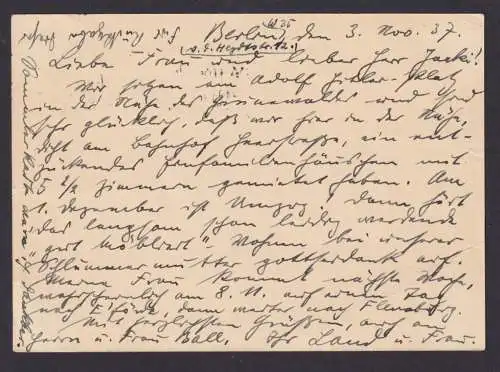 Berlin W 35, den 3. Nov. 37.
(v. d. Heydtstr. 12.)
Liebe Frau und lieber Herr Jacki!
Wir sitzen am Adolf Hitler-Platz
in der Nähe des Grunewaldes und sind
sehr glücklich, daß wir hier in der Nähe,
dicht am Bahnhof Heerstraße, ein ent-
zückendes Einfamilienhäuschen mit
5 1/2 Zimmern gemietet haben. Am
1. Dezember ist Umzug! Dann hört
das langsam schon leidig werdende
"gut möbliert"-Wohnen bei unserer
Schlummermutter gottseidank auf.
Meine Frau kommt nächste Woche,
wahrscheinlich am 8. 11. auf einen Tag
nach, dann weiter nach Flensburg.
Mit herzlichsten Grüßen, auch an
Herrn u. Frau Ball, Ihr Land u. Frau.